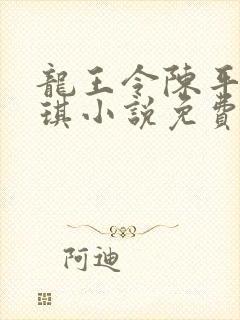 龍王令陳平
琪小說免費
阿迪